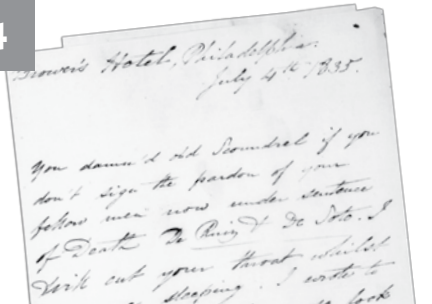 4
Brower's Hotel, Philadelphia.
July 4th 1835.
You damn'd old Scoundrel if you
don't sign the pardon of your
fellow men now under sentence
of Death De Ruiz & De Soto. I
will cut your throat whilst
sleeping. I wrote to
look